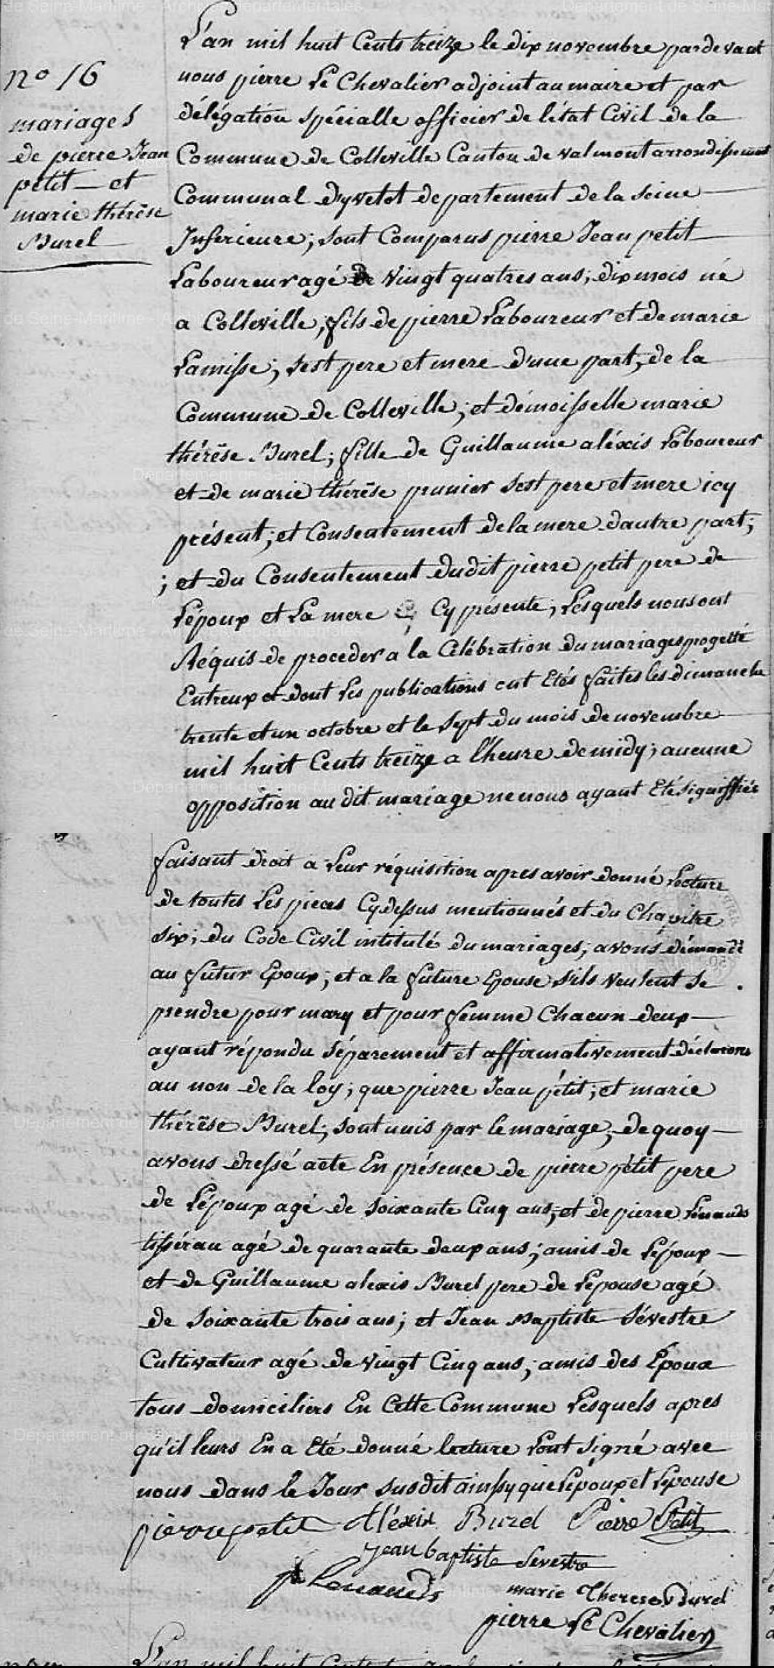 no 16
mariages
de pierre Jean
petit et
marie thérèse
Burel
L'an mil huit Cents treize le dix novembre pardevant
nous pierre Le Chevalier adjoint au maire et par
délégation spécialle officier de létat Civil de la
Commune de Colleville Canton de valmont arrondissement
Communal dyvetot departement de la seine
Inferieure; sont Comparus pierre Jean petit
Laboureur agé de vingt quatres ans, dix mois né
a Colleville, fils de pierre Laboureur et de marie
Lamisse; sest pere et mere d'une part, de la
Commune de Colleville; et démoisselle marie
thérèse Burel; fille de Guillaume aléxis Laboureur
et de marie thérèse prunier sest pere et mere icy
présent; et Consentement de la mere d'autre part;
; et du Consentement dudit pierre petit pere de
Lépoux et La mere Cy présente; Lesquels nous ont
Réquis de proceder a la Célébration du mariages progetté
Entreux et dont Les publications ont Etés faites les dimanche
trente et un octobre et le sept du mois de novembre
mil huit Cents treize a l'heure de midy; aucune
opposition au dit mariage ne nous ayant Eté signiffiés
faisant droit a Leur réquisition apres avoir donné Lecture
de toutes Les pieces Cy dessus mentionnés et du Chapitre
six; du Code Civil intitulé du mariages; avons démandé
au futur Epoux; et a la future Epouse s'ils veulent se
prendre pour mary et pour femme Chacun deux
ayant répondu séparement et affirmativement déclarons
au non de la loy; que pierre Jean pétit; et marie
thérèse Burel; sont unis par le mariage; de quoy
avons dressé acte En présence de pierre pétit pere
de Lépoux agé de soixante Cinq ans; et de pierre Lénauds
tisséran agé de quarante deux ans; amis de Lépoux
et de Guillaume alexis Burel pere de Lépouse agé
de soixante trois ans; et Jean Baptiste Sévestre
Cultivateur agé de vingt Cinq ans; amis des Epoux
tous domiciliers En Cette Commune Lesquels apres
qu'il leurs En a Eté donné lecture Lont signé avec
nous dans le Jour susdit ainssy que Lépoux et Lépouse
pierre petit Aléxix Burel Pierre Petit
jean baptiste Sevestre
p Lenauds
marie Therese Burel
pierre Le Chevalier